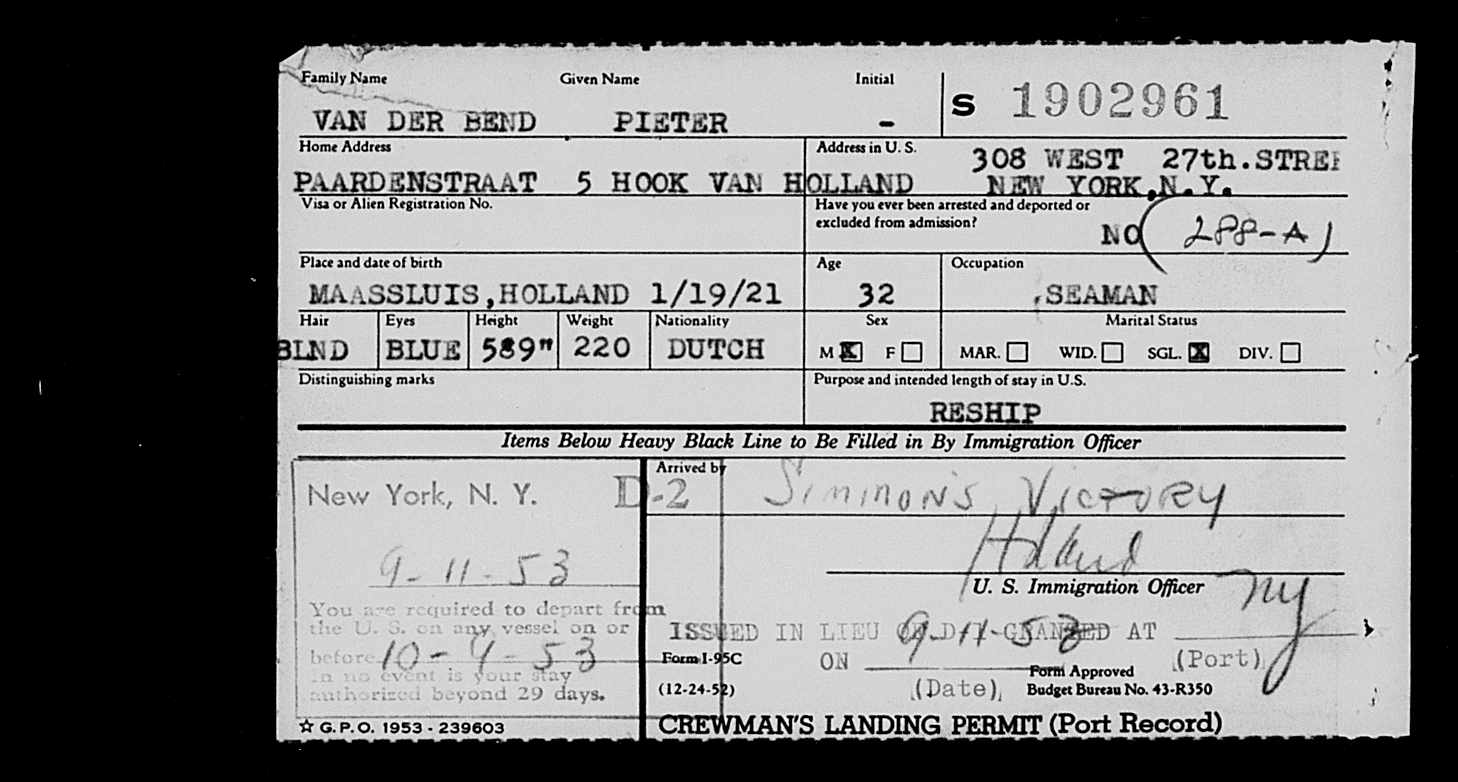 Family Name Given Name Initial
VAN DER BEND PIETER -
S 1902961
Home Address
PAARDENSTRAAT 5 HOOK VAN HOLLAND
Address in U. S.
308 WEST 27th.STREE
NEW YORK,N.Y.
Visa or Alien Registration No.
Have you ever been arrested and deported or
excluded from admission?
NO (288-A)
Place and date of birth
MAASSLUIS,HOLLAND 1/19/21
Age
32
Occupation
SEAMAN
Hair Eyes Height Weight Nationality
BLND BLUE 589" 220 DUTCH
Sex
M X F
Marital Status
MAR. WID. SGL. X DIV.
Distinguishing marks
Purpose and intended length of stay in U.S.
RESHIP
Items Below Heavy Black Line to Be Filled in By Immigration Officer
New York, N. Y. D-2
9-11-53
You are required to depart from
the U. S. on any vessel on or
before 10-9-53
in no event is your stay
authorized beyond 29 days.
☆ G.P.O. 1953 - 239603
Arrived by
Simmons Victory
U. S. Immigration Officer
ISSUED IN LIEU OF D-1 GRANTED AT NY
(Port)
ON 9-11-53
(Date)
Form I-95C
(12-24-52)
Form Approved
Budget Bureau No. 43-R350
CREWMAN'S LANDING PERMIT (Port Record)